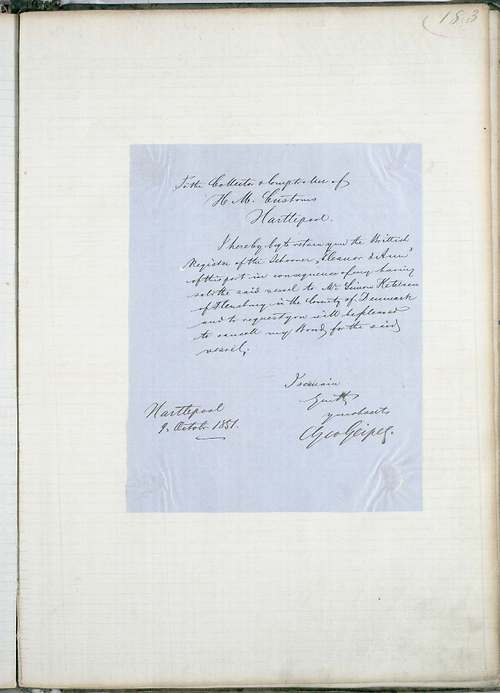 183
To the Collector & Comptroller of
H. M. Customs
Hartlepool.
I hereby beg to return you the British
Register of the Schooner "Eleanor & Ann"
of this port in consequence of my having
sold the said vessel to Mr Simon
of Flensburg in the County of Denmark
and to request you will be pleased
to cancell my Bond for the said
vessel.
I remain
Gentn
your obedt
Geo Geipel.
Hartlepool
9 October 1851.